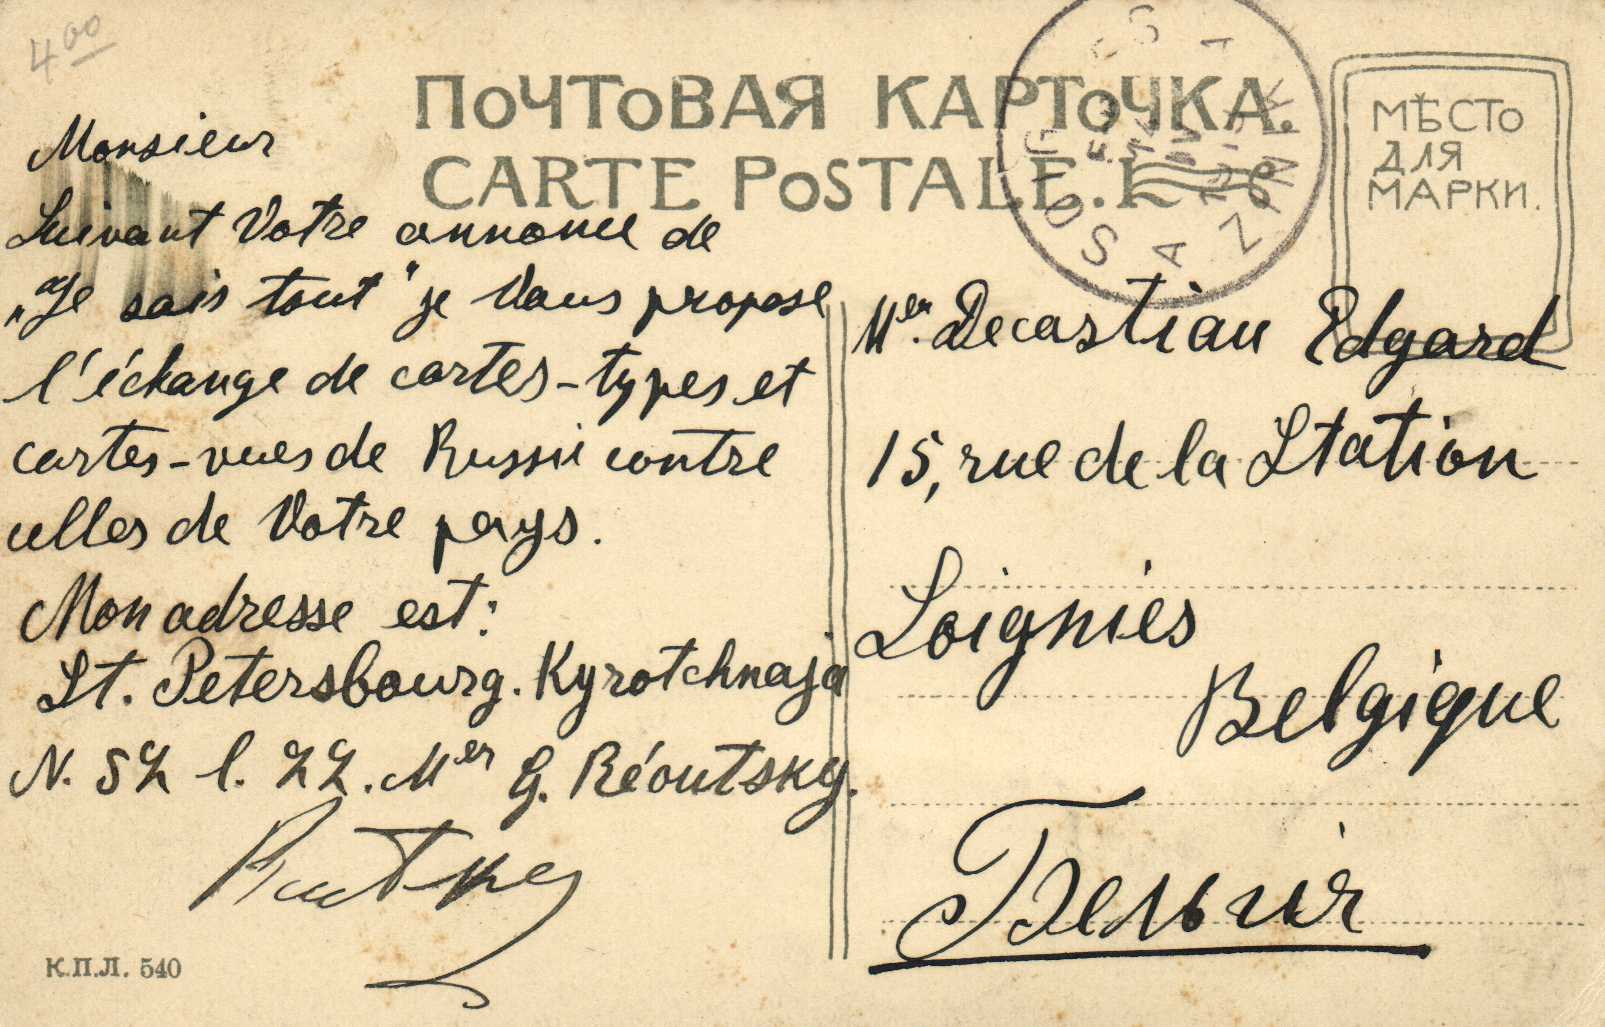 4⁰⁰
ПОЧТОВАЯ КАРТОЧКА.
CARTE POSTALE.
МѢСТО
ДЛЯ
МАРКИ.
Monsieur
Suivant Votre annonce de
„Je sais tout" je Vous propose
l'échange de cartes-types et
cartes-vues de Russie contre
celles de Votre pays.
Mon adresse est:
St. Petersbourg. Kyrotchnaja
N. 52 l. 22. Mer G. Réoutsky.
К.П.Л. 540
Mer. Decastiau Edgard
15, rue de la Station
Soignies
Belgique
Бельгія